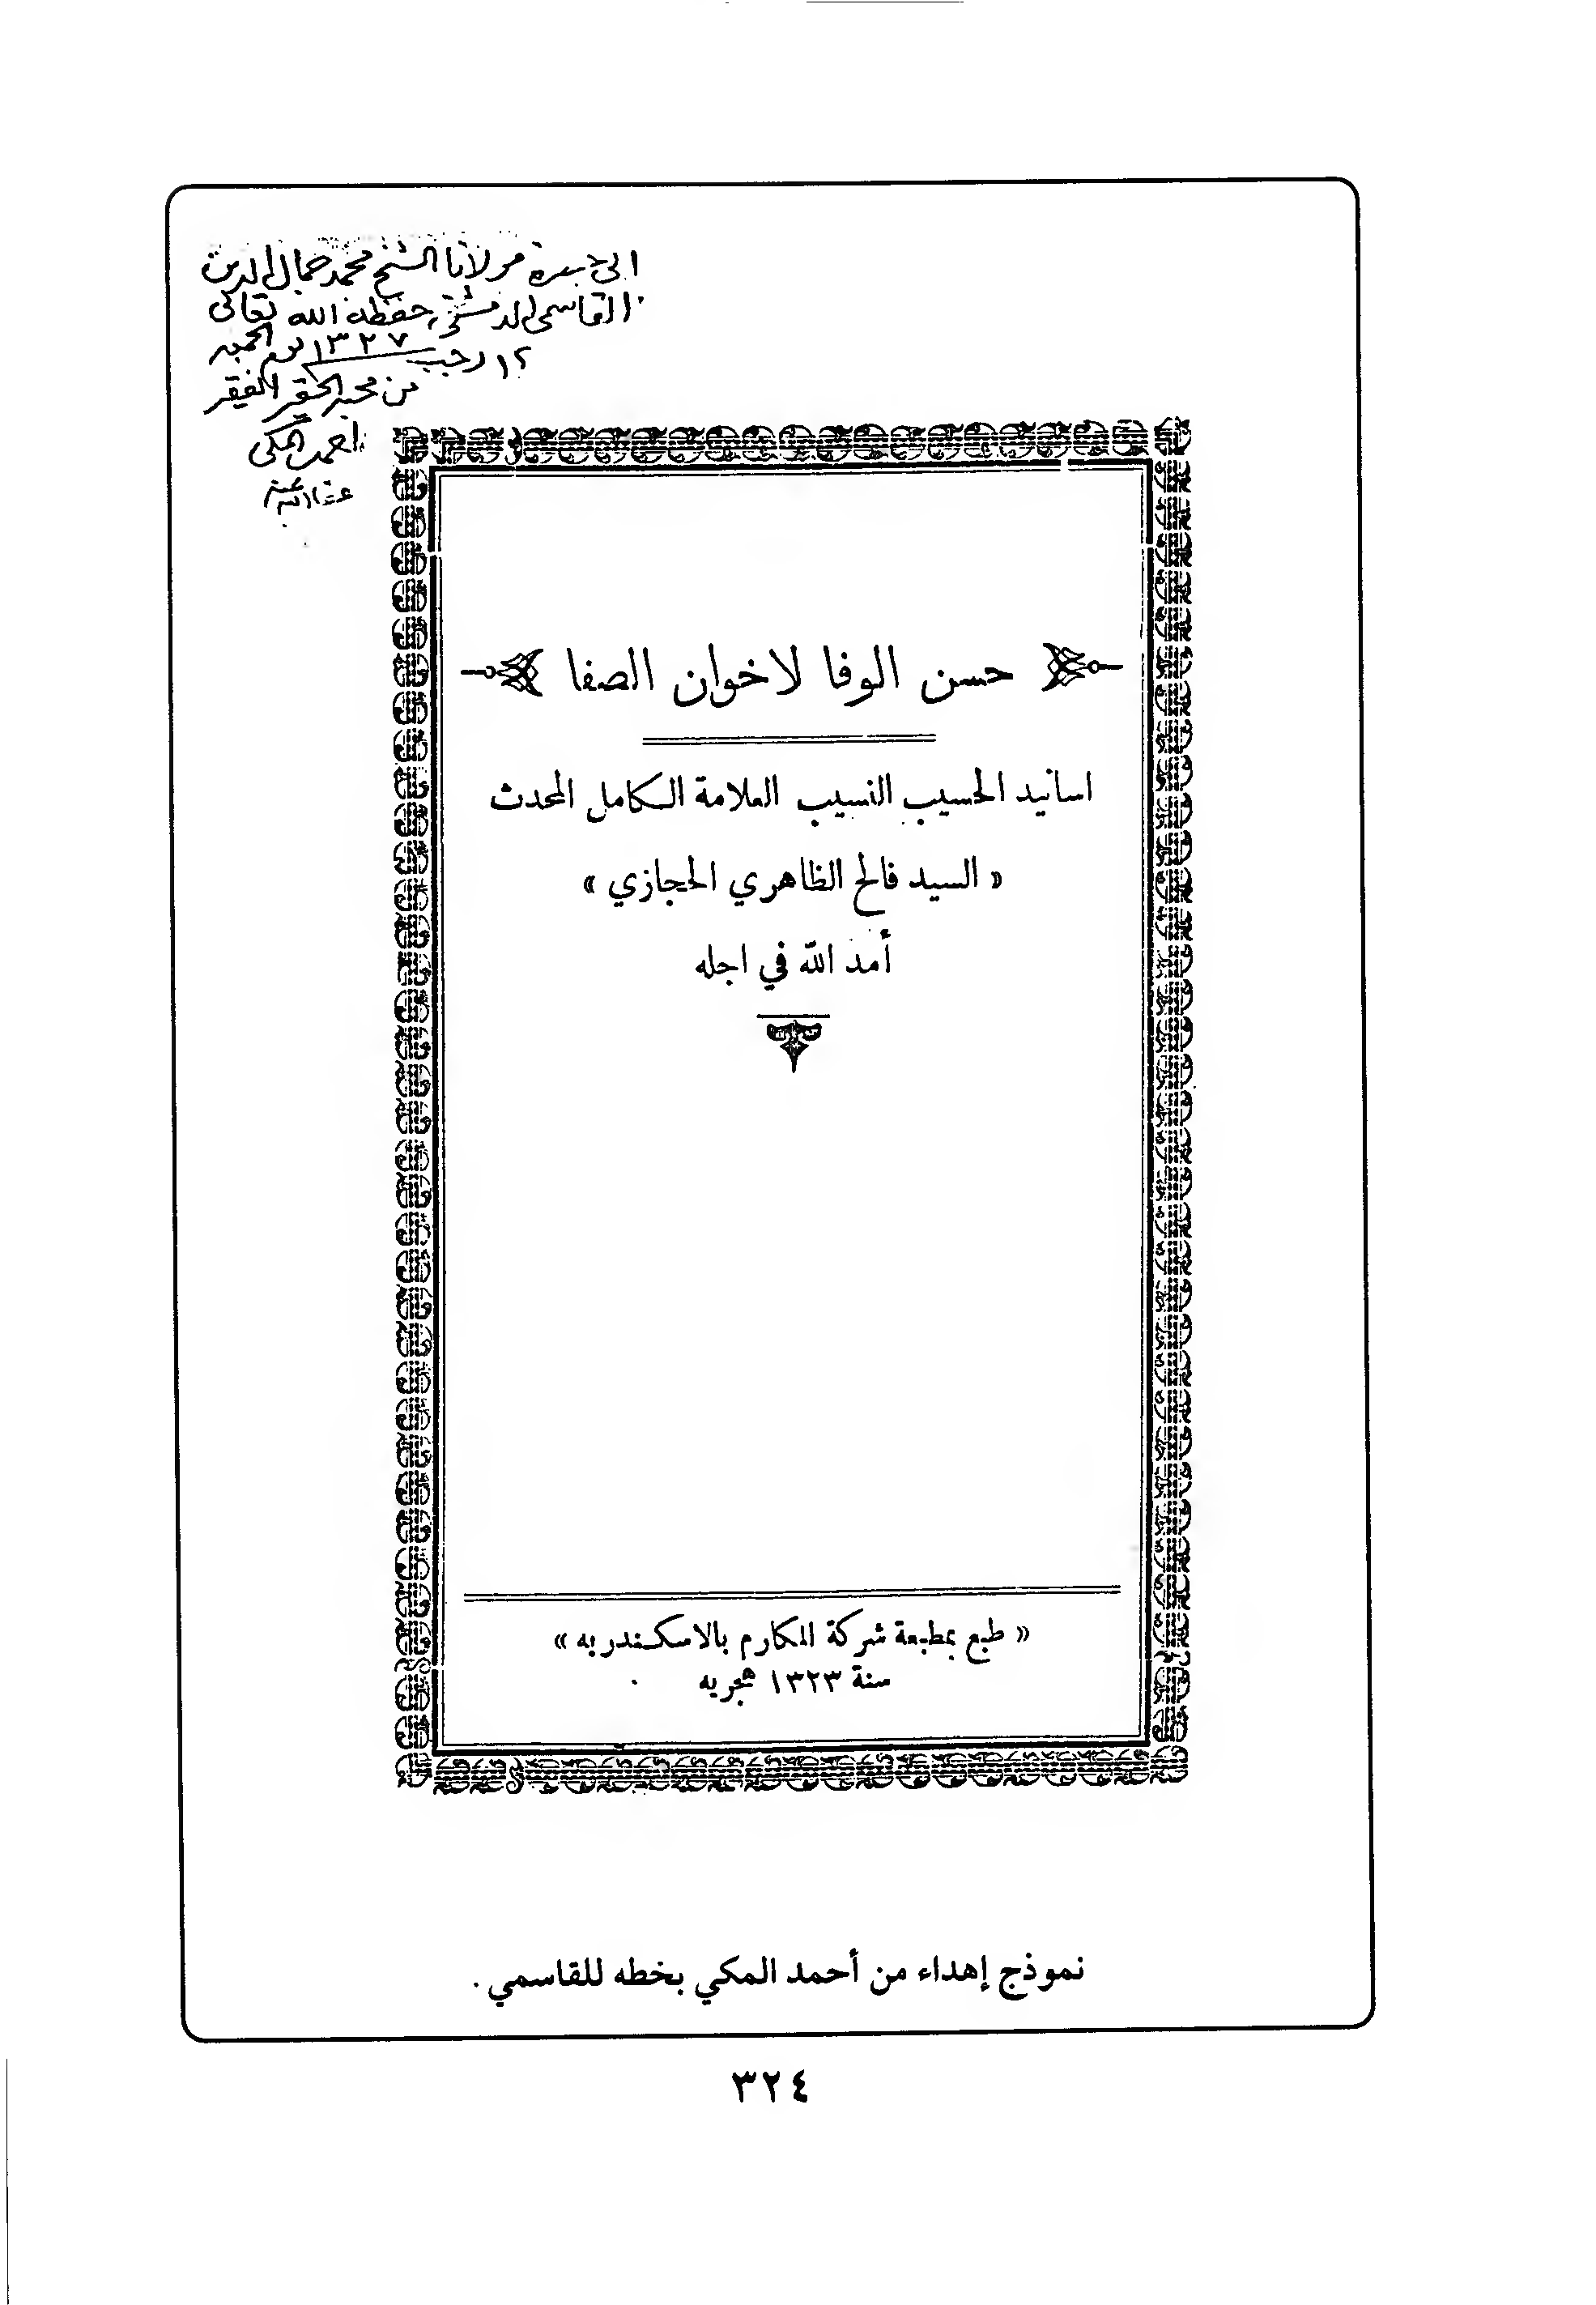 الى حضرة مولانا الشيخ محمد جمال الدين
القاسمي الدمشقي حفظه الله تعالى
١٢ رجب ١٣٢٧ يوم الجمعه
من محبه الحقير الفقير
احمد المكي
عفا الله عنه
حسن الوفا لاخوان الصفا
اسانيد الحسيب النسيب العلامة الكامل المحدث
« السيد فالح الظاهري الحجازي »
أمد الله في اجله
« طبع بمطبعة شركة المكارم بالاسكندريه »
سنة ١٣٢٣ هجريه
نموذج إهداء من أحمد المكي بخطه للقاسمي .
٣٢٤